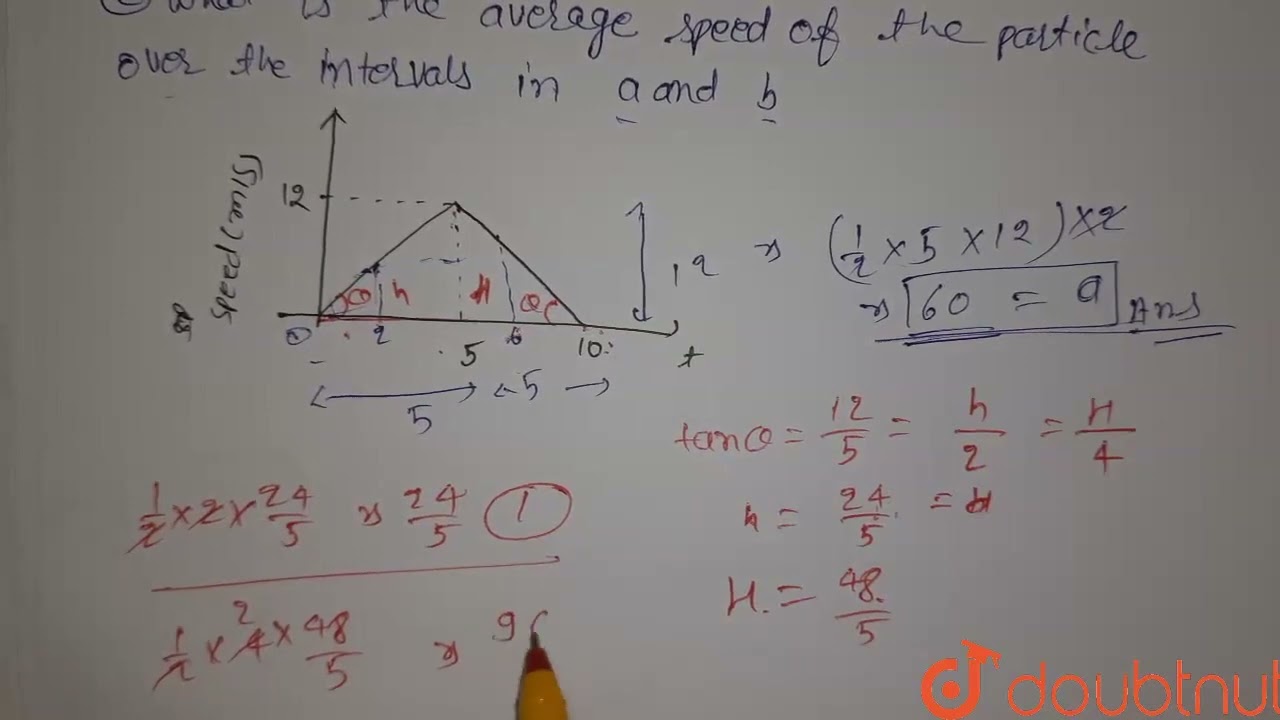 What is the average speed of the particle
over the intervals in a and b
Speed (ms⁻¹)
12
θ h H θ
0 2 5 6 10 t
5 5
12
(1/2 × 5 × 12) × 2
60 = a Ans
tanθ = 12/5 = h/2 = H/4
h = 24/5
H = 48/5
1/2 × 2 × 24/5 24/5 1
1/2 × 4 × 48/5 9
2
doubtnut